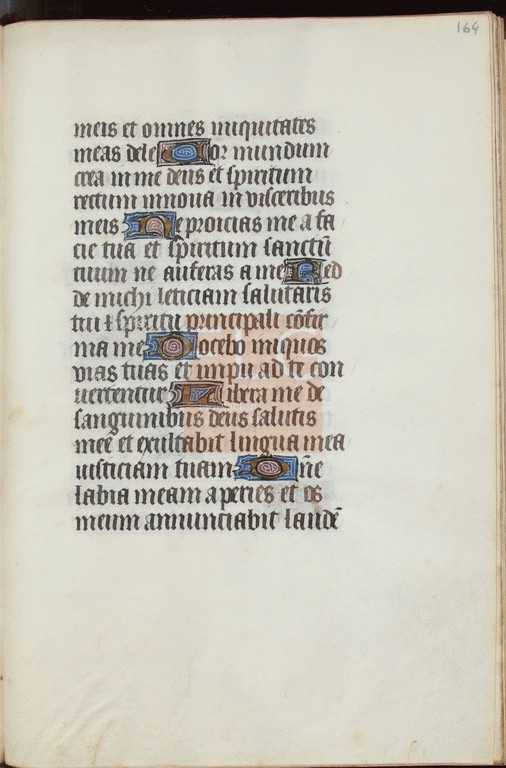 164
meis et omnes iniquitates
meas dele Cor mundum
crea in me deus et spiritum
rectum innova in visceribus
meis Ne proicias me a fa
cie tua et spiritum sanctū
tuum ne auferas a me Red
de michi leticiam salutaris
tui et spiritu principali cōfir
ma me Docebo iniquos
vias tuas et impii ad te con
vertentur Libera me de
sanguinibus deus salutis
mee et exultabit lingua mea
iusticiam tuam Dñe
labia meam aperies et os
meum annunciabit laudē